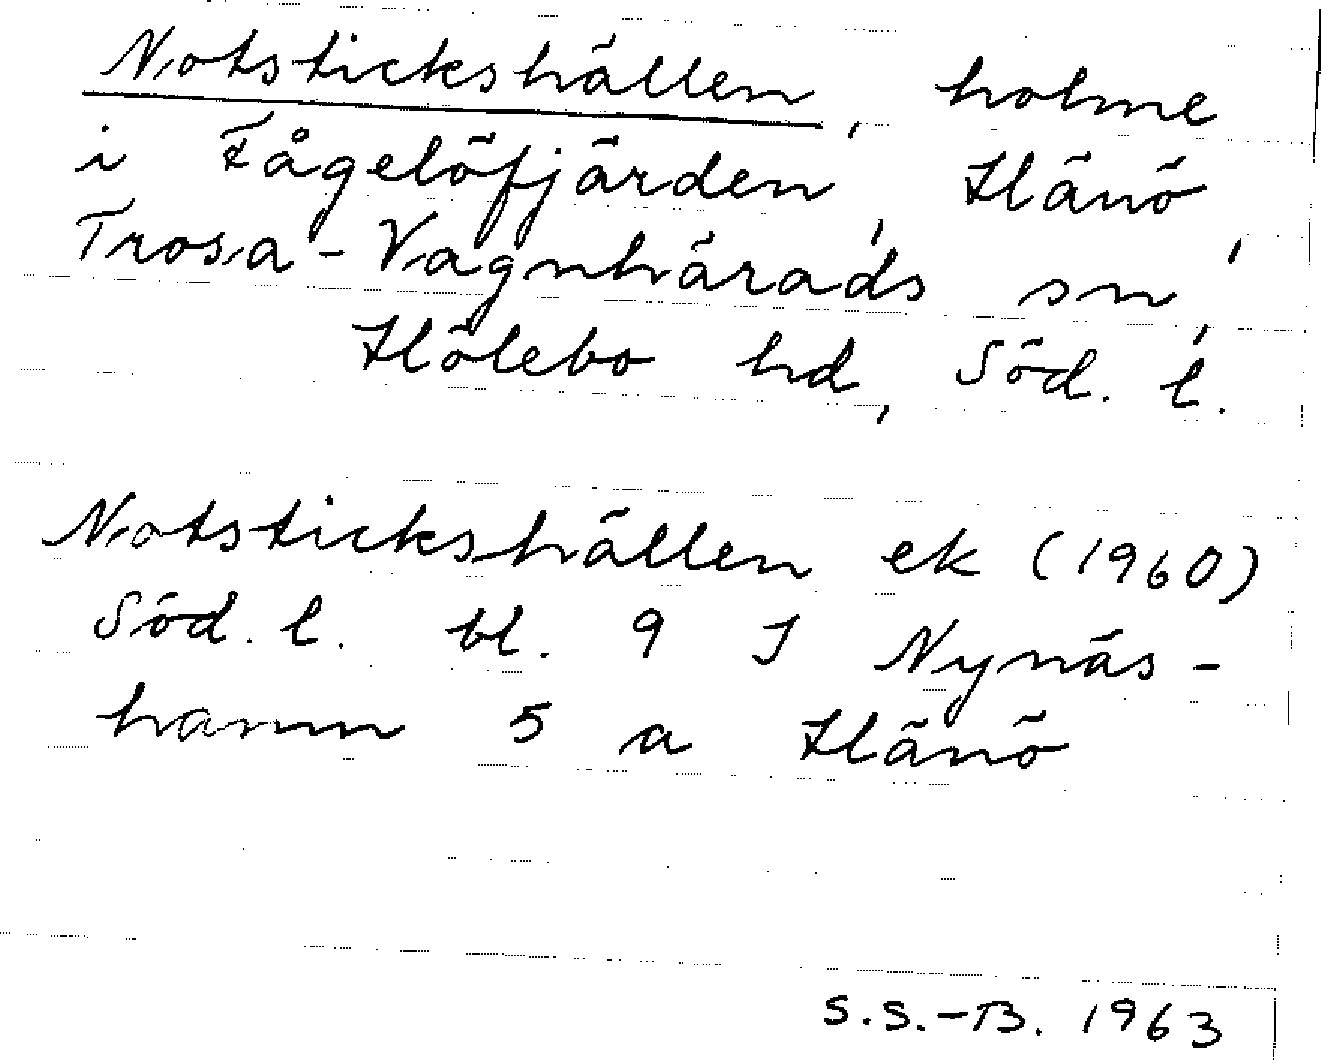 Notstickshällen, holme
i Fågelöfjärden, Hånö,
Trosa-Vagnhärads sn,
Hölebo hd, Söd. l.
Notstickshällen ek (1960)
Söd. l. bl. 9 I Nynäs-
hamn 5 a Hånö
S.S.-B. 1963